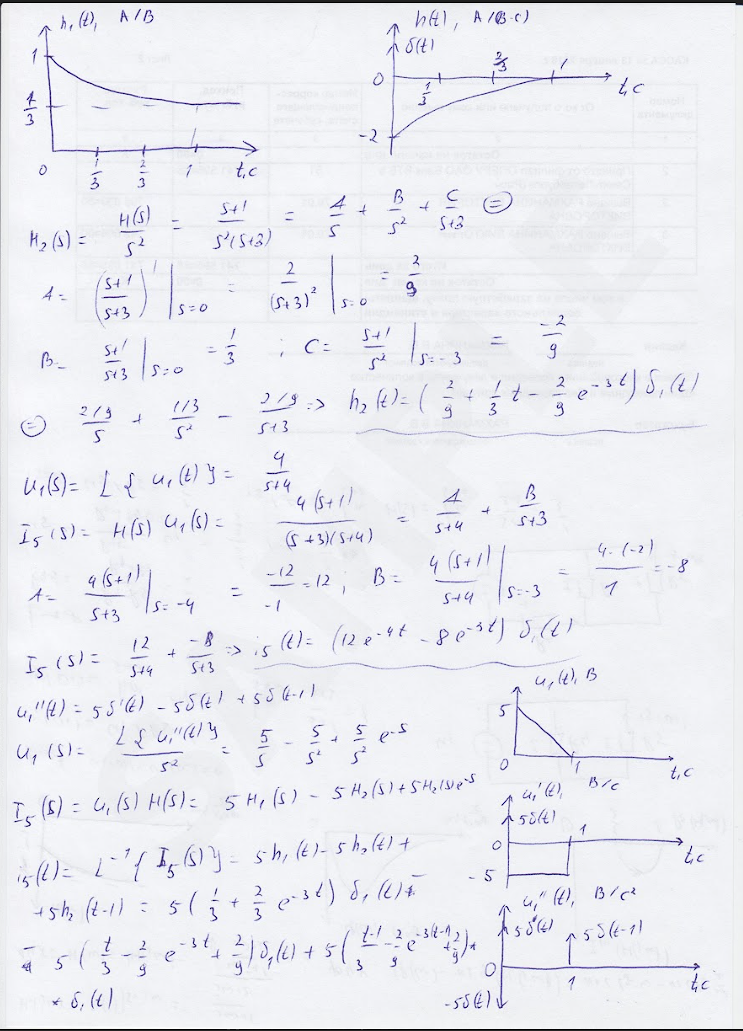 h₁(t), А/В
1
1/3
0 1/3 2/3 1 t,с
h(t), А/(В·с)
δ(t)
0 1/3 2/3 1 t,с
-2
H₂(s) = H(s)/s² = (s+1)/(s²(s+3)) = A/s + B/s² + C/(s+3) ⊜
A = ((s+1)/(s+3))' |s=0 = 2/(s+3)² |s=0 = 2/9
B = (s+1)/(s+3) |s=0 = 1/3 ; C = (s+1)/s² |s=-3 = -2/9
⊜ (2/9)/s + (1/3)/s² - (2/9)/(s+3) => h₂(t) = (2/9 + 1/3 t - 2/9 e^(-3t)) δ₁(t)
U₁(s) = L{u₁(t)} = 4/(s+4)
I₅(s) = H(s) U₁(s) = 4(s+1)/((s+3)(s+4)) = A/(s+4) + B/(s+3)
A = 4(s+1)/(s+3) |s=-4 = -12/-1 = 12 ; B = 4(s+1)/(s+4) |s=-3 = 4·(-2)/1 = -8
I₅(s) = 12/(s+4) + -8/(s+3) => i₅(t) = (12e^(-4t) - 8e^(-3t)) δ₁(t)
u₁''(t) = 5δ'(t) - 5δ(t) + 5δ(t-1)
U₁(s) = L{u₁''(t)}/s² = 5/s - 5/s² + 5/s² e^(-s)
I₅(s) = U₁(s) H(s) = 5H₁(s) - 5H₂(s) + 5H₂(s)e^(-s)
i₅(t) = L⁻¹{I₅(s)} = 5h₁(t) - 5h₂(t) +
+ 5h₂(t-1) = 5(1/3 + 2/3 e^(-3t)) δ₁(t) -
- 5(t/3 - 2/9 e^(-3t) + 2/9) δ₁(t) + 5((t-1)/3 - 2/9 e^(-3(t-1)) + 2/9) *
* δ₁(t)
u₁(t), В
5
0 1 t,с
u₁'(t), В/с
5δ(t)
0 1 t,с
-5
u₁''(t), В/с²
5δ'(t) 5δ(t-1)
0 1 t,с
-5δ(t)